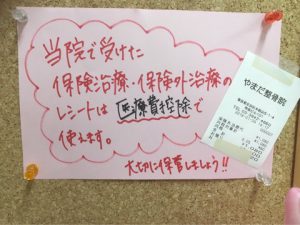 当院で受けた
保険治療・保険外治療の
レシートは 医療費控除で
使えます。
大切に保管しましょう!!
やまだ整骨院